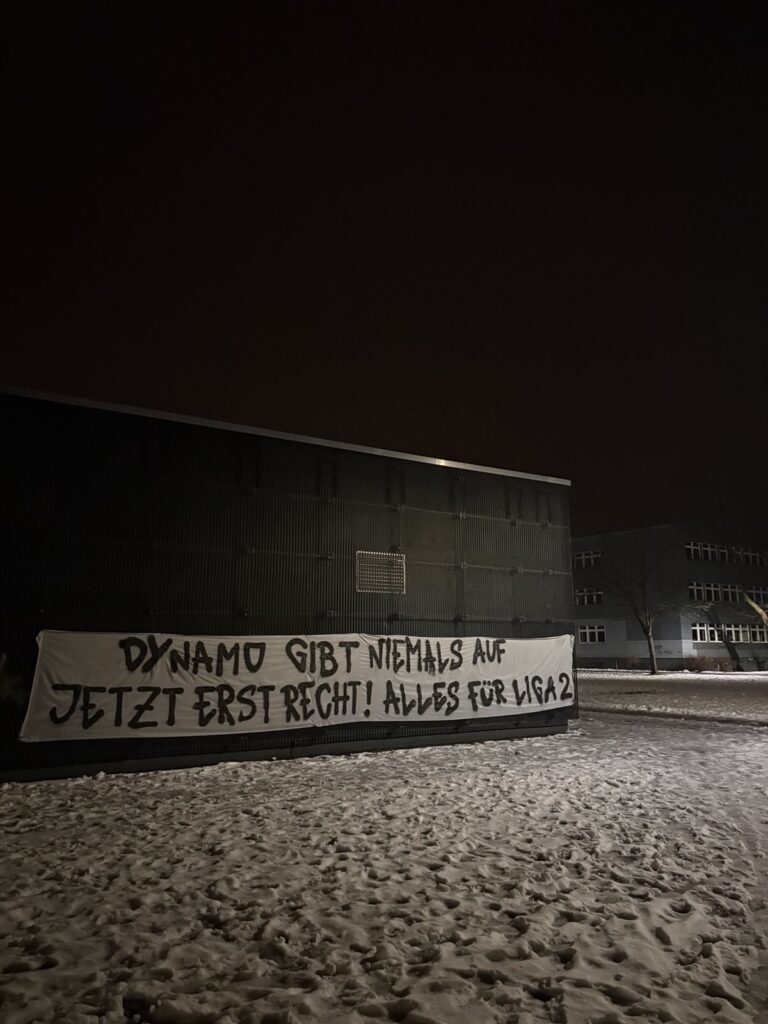 DYNAMO GIBT NIEMALS AUF
JETZT ERST RECHT! ALLES FÜR LIGA 2